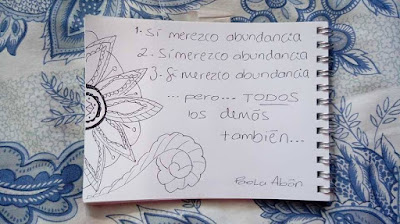 1- Sí merezco abundancia
2- Sí merezco abundancia
3- Sí merezco abundancia
...pero... TODOS
los demás
también...
Paola Abán